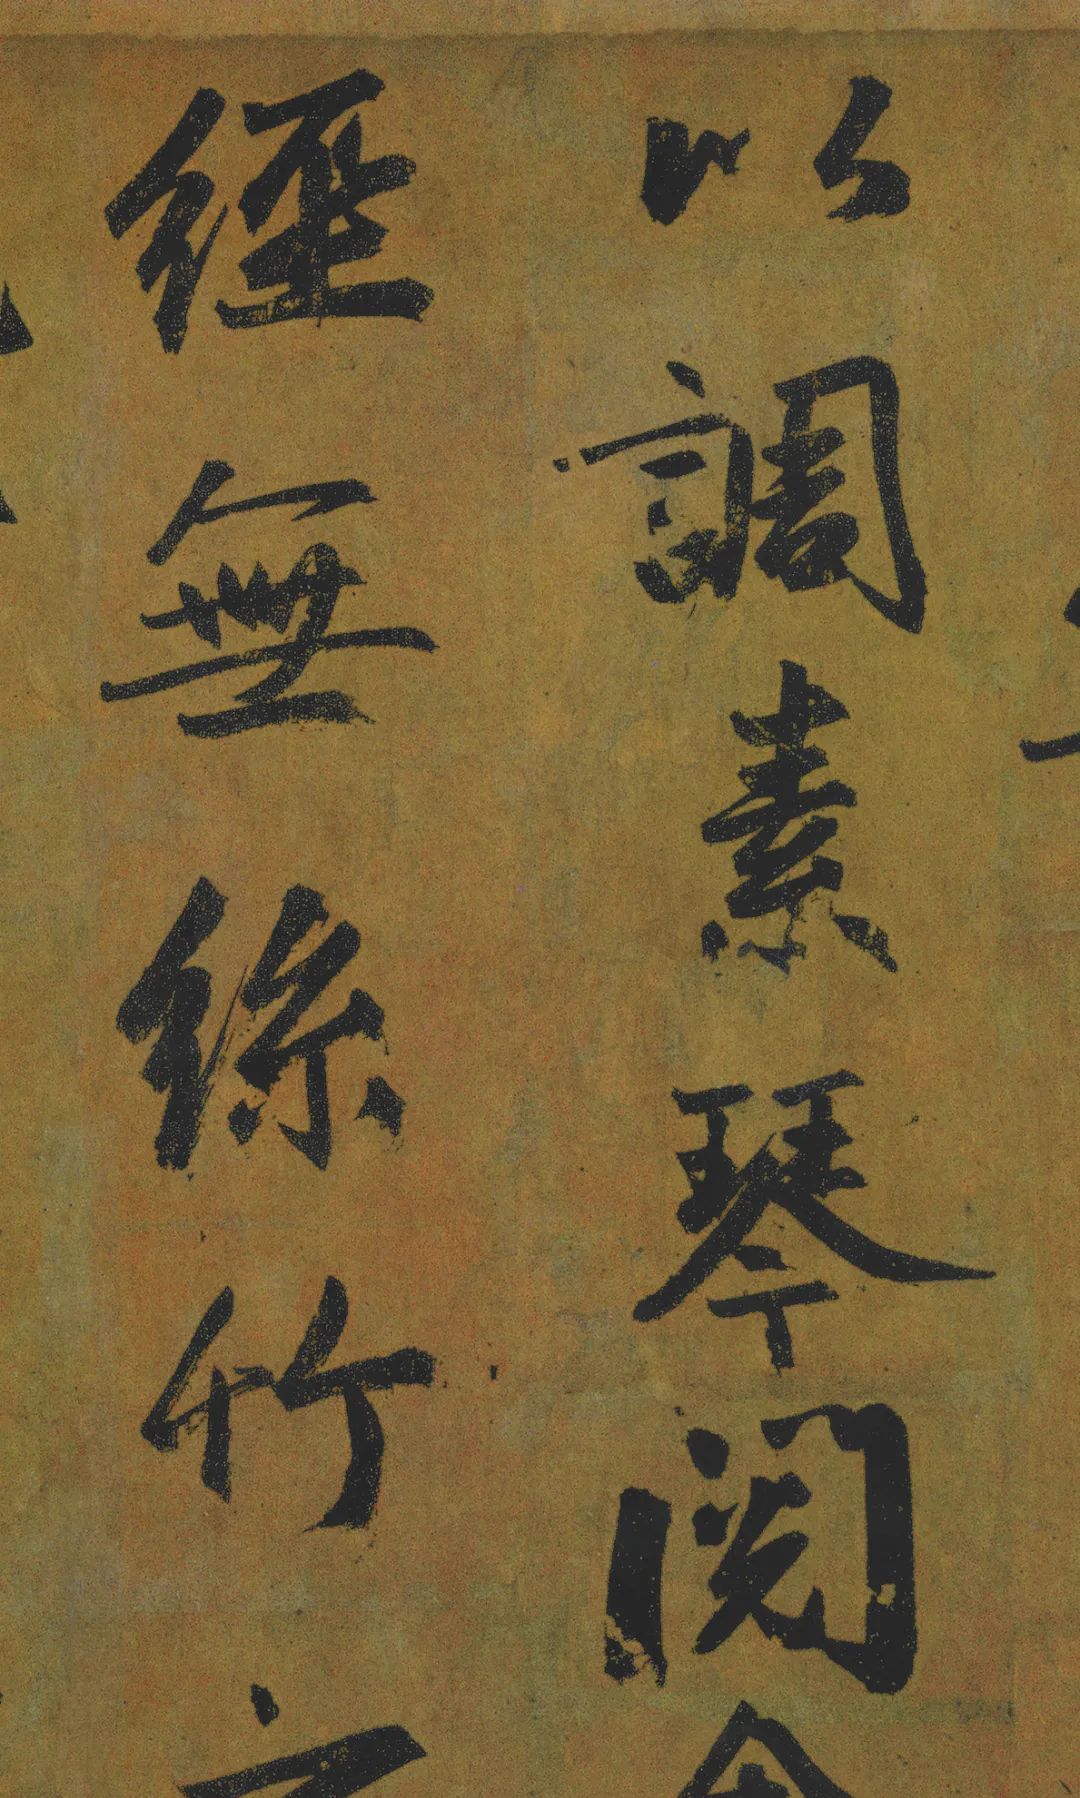 以調素琴閱金
經無絲竹